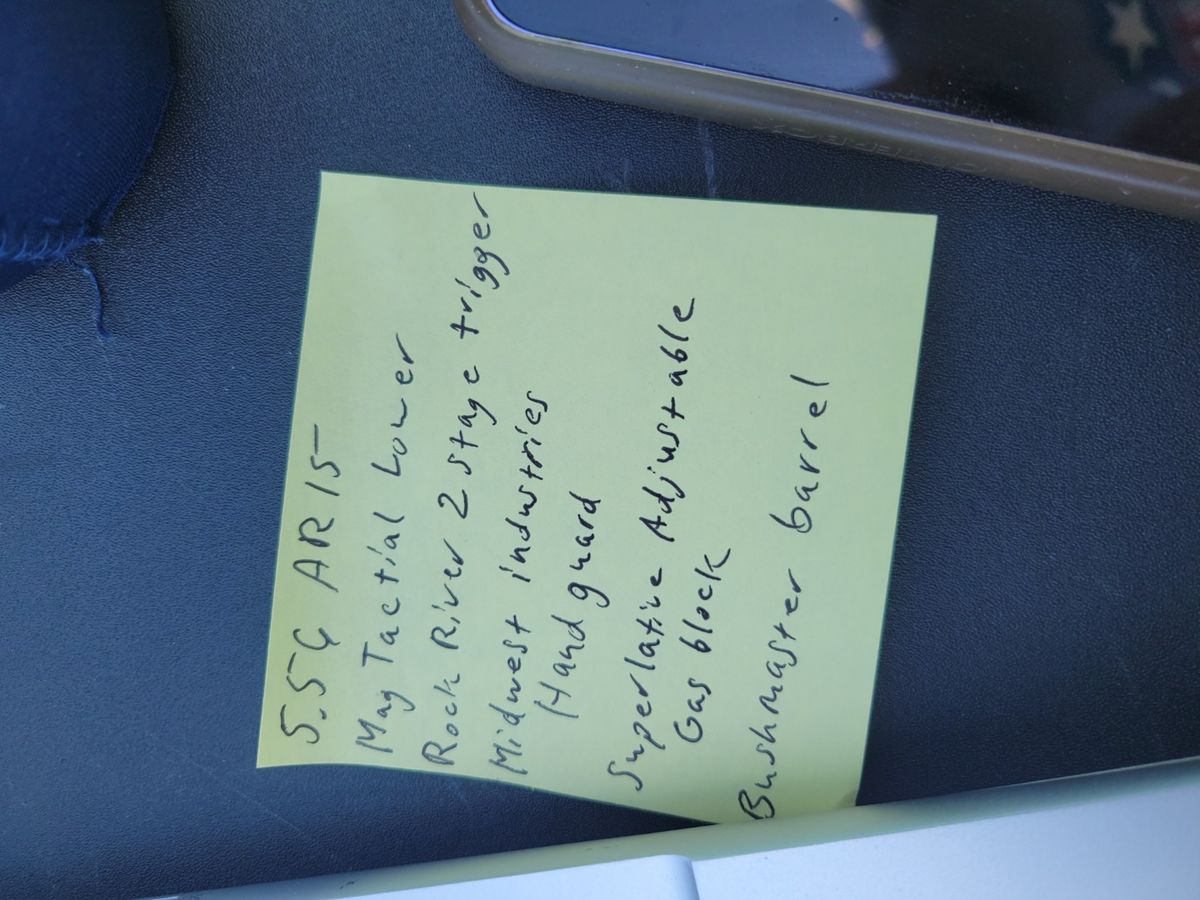 5.56 AR 15
Mag Tactial Lower
Rock River 2 stage trigger
Midwest industries
Hand guard
Superlative Adjustable
Gas block
Bushmaster barrel